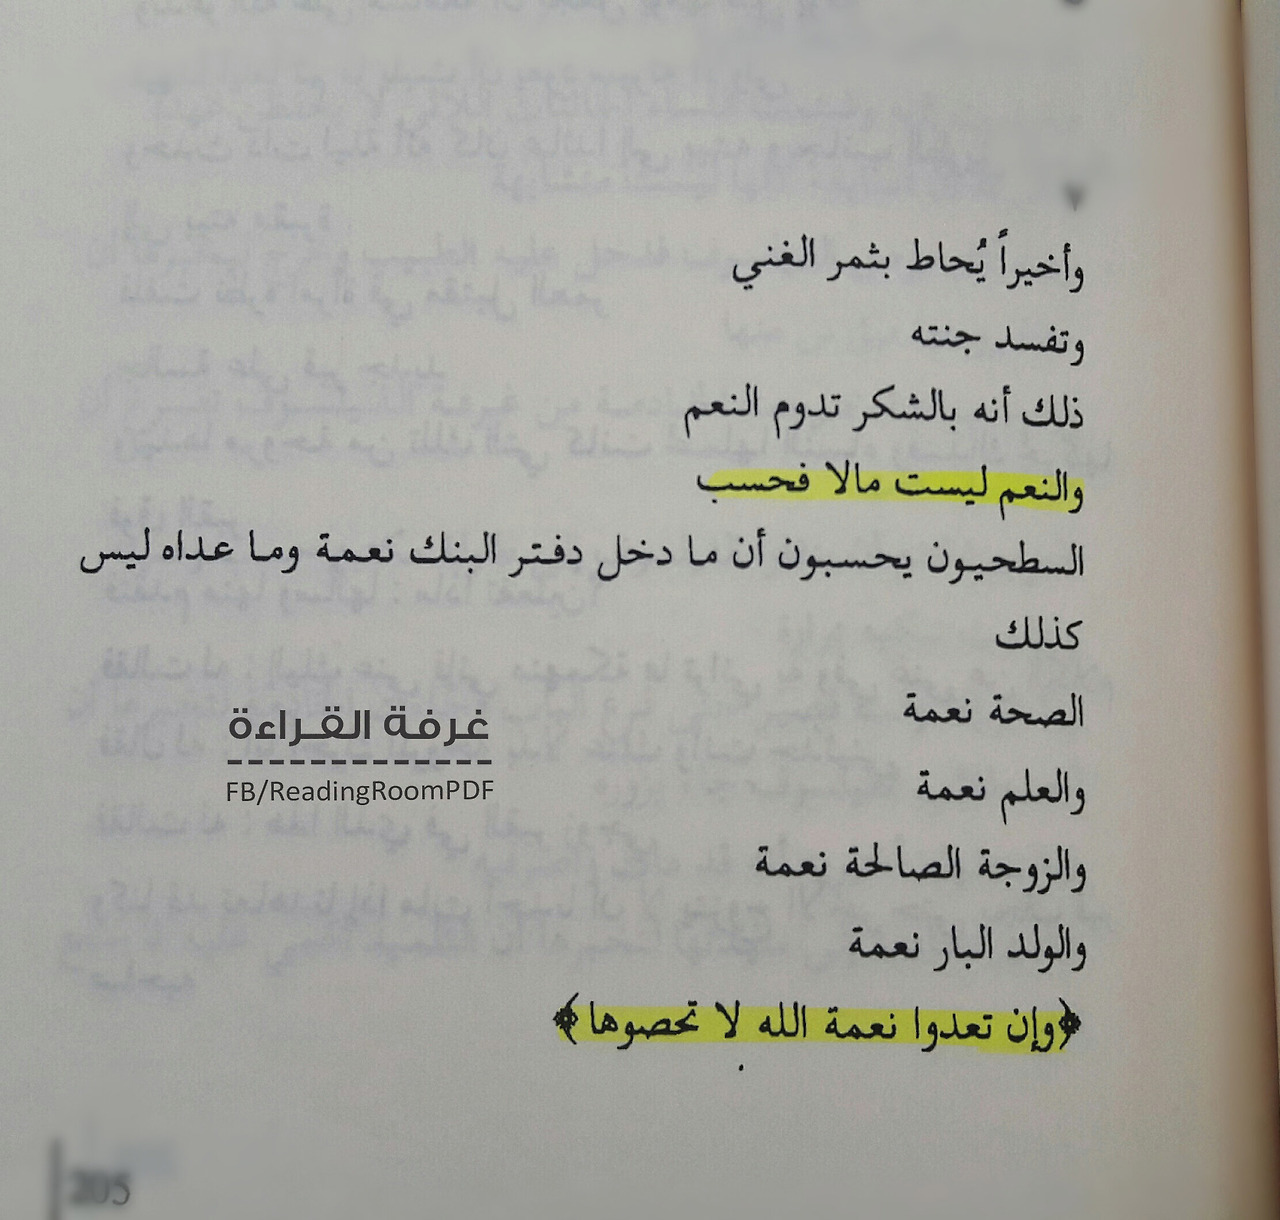 ٧
وأخيراً يُحاط بثمر الغني
وتفسد جنته
ذلك أنه بالشكر تدوم النعم
والنعم ليست مالا فحسب
السطحيون يحسبون أن ما دخل دفتر البنك نعمة وما عداه ليس
كذلك
الصحة نعمة
غرفة القراءة
FB/ReadingRoomPDF
والعلم نعمة
والزوجة الصالحة نعمة
والولد البار نعمة
﴿وإن تعدوا نعمة الله لا تحصوها﴾
205